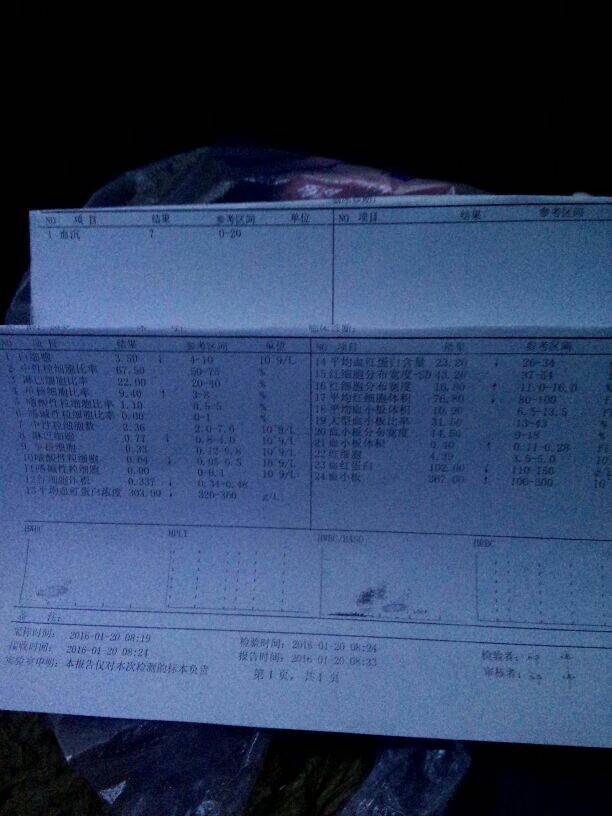 NO 项目 结果 参考区间 单位 NO 项目 结果 参考区间
1 血沉 7 0-20
NO 项目 结果 参考区间 单位 NO 项目 结果 参考区间
1 白细胞 3.50 ↓ 4-10 10^9/L 14 平均血红蛋白含量 23.20 ↓ 26-34
2 中性粒细胞比率 67.50 50-75 % 15 红细胞分布宽度-SD 43.20 37-54
3 淋巴细胞比率 22.00 20-40 % 16 红细胞分布宽度 16.80 ↑ 11.0-16.0
4 单核细胞比率 9.40 ↑ 3-8 % 17 平均红细胞体积 76.80 ↓ 80-100
5 嗜酸性粒细胞比率 1.10 0.5-5 % 18 平均血小板体积 10.90 6.5-13.5
6 嗜碱性粒细胞比率 0.00 0-1 % 19 大型血小板比率 31.50 13-43
7 中性粒细胞数 2.36 2.0-7.0 10^9/L 20 血小板分布宽度 14.50 9-18
8 淋巴细胞 0.77 ↓ 0.8-4.0 10^9/L 21 血小板体积 0.40 ↑ 0.11-0.28
9 单核细胞 0.33 0.12-0.8 10^9/L 22 红细胞 4.39 3.5-5.0
10 嗜酸性粒细胞 0.04 ↓ 0.05-0.5 10^9/L 23 血红蛋白 102.00 ↓ 110-150
11 嗜碱性粒细胞 0.00 0-0.1 10^9/L 24 血小板 367.00 ↑ 100-300
12 红细胞压积 0.337 ↓ 0.34-0.48
13 平均血红蛋白浓度 303.00 ↓ 320-360 g/L
HPLT HWBC/BASO HRBC
备 注:
采样时间: 2016-01-20 08:19 检验时间: 2016-01-20 08:24 检验者:
接收时间: 2016-01-20 08:24 报告时间: 2016-01-20 08:33 审核者:
实验室申明: 本报告仅对本次检测的标本负责 第 1 页, 共 1 页